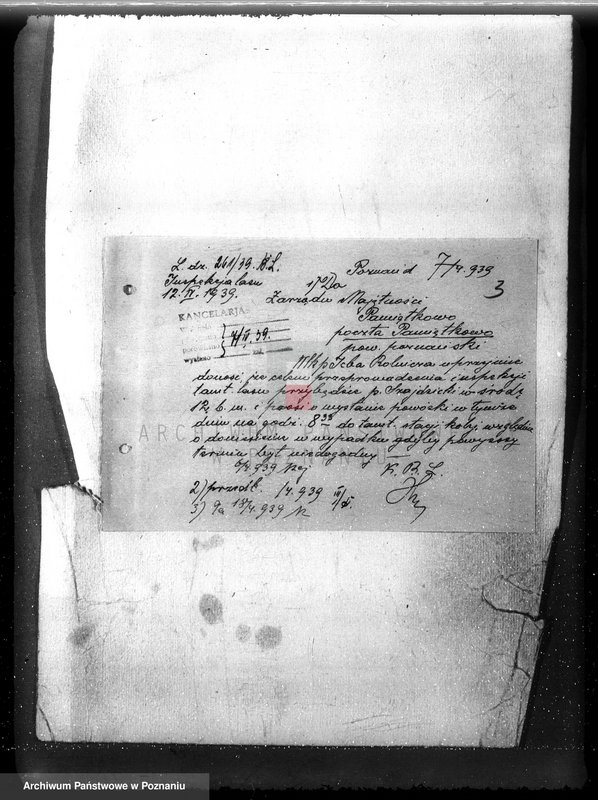 L. dz. 261/39. B.L.
Poznań d 7/4. 939
3
Inspekcja lasu
12. IV. 1939.
1) Do
Zarządu Majętności
Pamiątkowo
poczta Pamiątkowo
pow. poznański
KANCELARJA
7/IV. 39.
wysłano zał.
Wlkp. Izba Rolnicza uprzejmie
donosi, że celem przeprowadzenia inspekcji
tamt. lasu przybędzie p. Szajdzicki w środę
12. b. m. i prosi o wysłanie powózki w tymże
dniu na godz. 8 do tamt. stacji kolej. względn.
o doniesienie w wypadku gdyby powyższy
termin był niedogodny
6/4 939
K. B. L.
2) /4. 939
3) 18/4. 939
ARCHIWUM
Archiwum Państwowe w Poznaniu